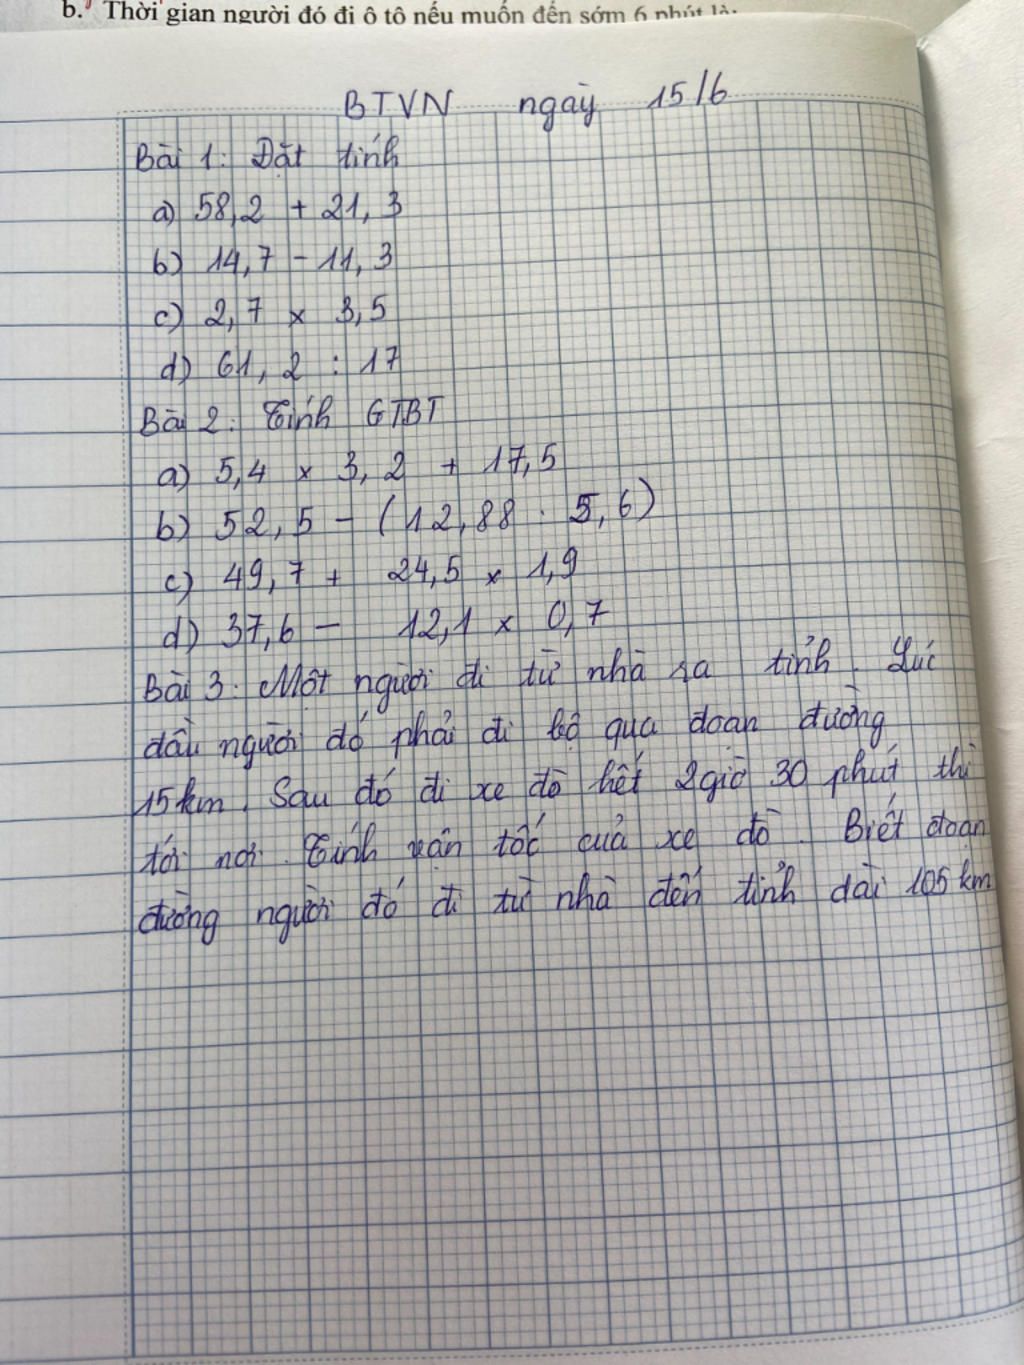 b. Thời gian người đó đi ô tô nếu muốn đến sớm 6 phút là:
BTVN ngày 15/6
Bài 1: Đặt tính
a) 58,2 + 21,3
b) 14,7 - 11,3
c) 2,7 x 3,5
d) 61,2 : 17
Bài 2: Tính GTBT
a) 5,4 x 3,2 + 17,5
b) 52,5 - (12,88 : 5,6)
c) 49,7 + 24,5 x 1,9
d) 37,6 - 12,1 x 0,7
Bài 3: Một người đi từ nhà ra tỉnh. Lúc
đầu người đó phải đi bộ qua đoan đường
15km. Sau đó đi xe đò hết 2giờ 30 phút thì
tới nơi. Tính vận tốc của xe đò. Biết đoạn
đường người đó đi từ nhà đến tỉnh dài 105km